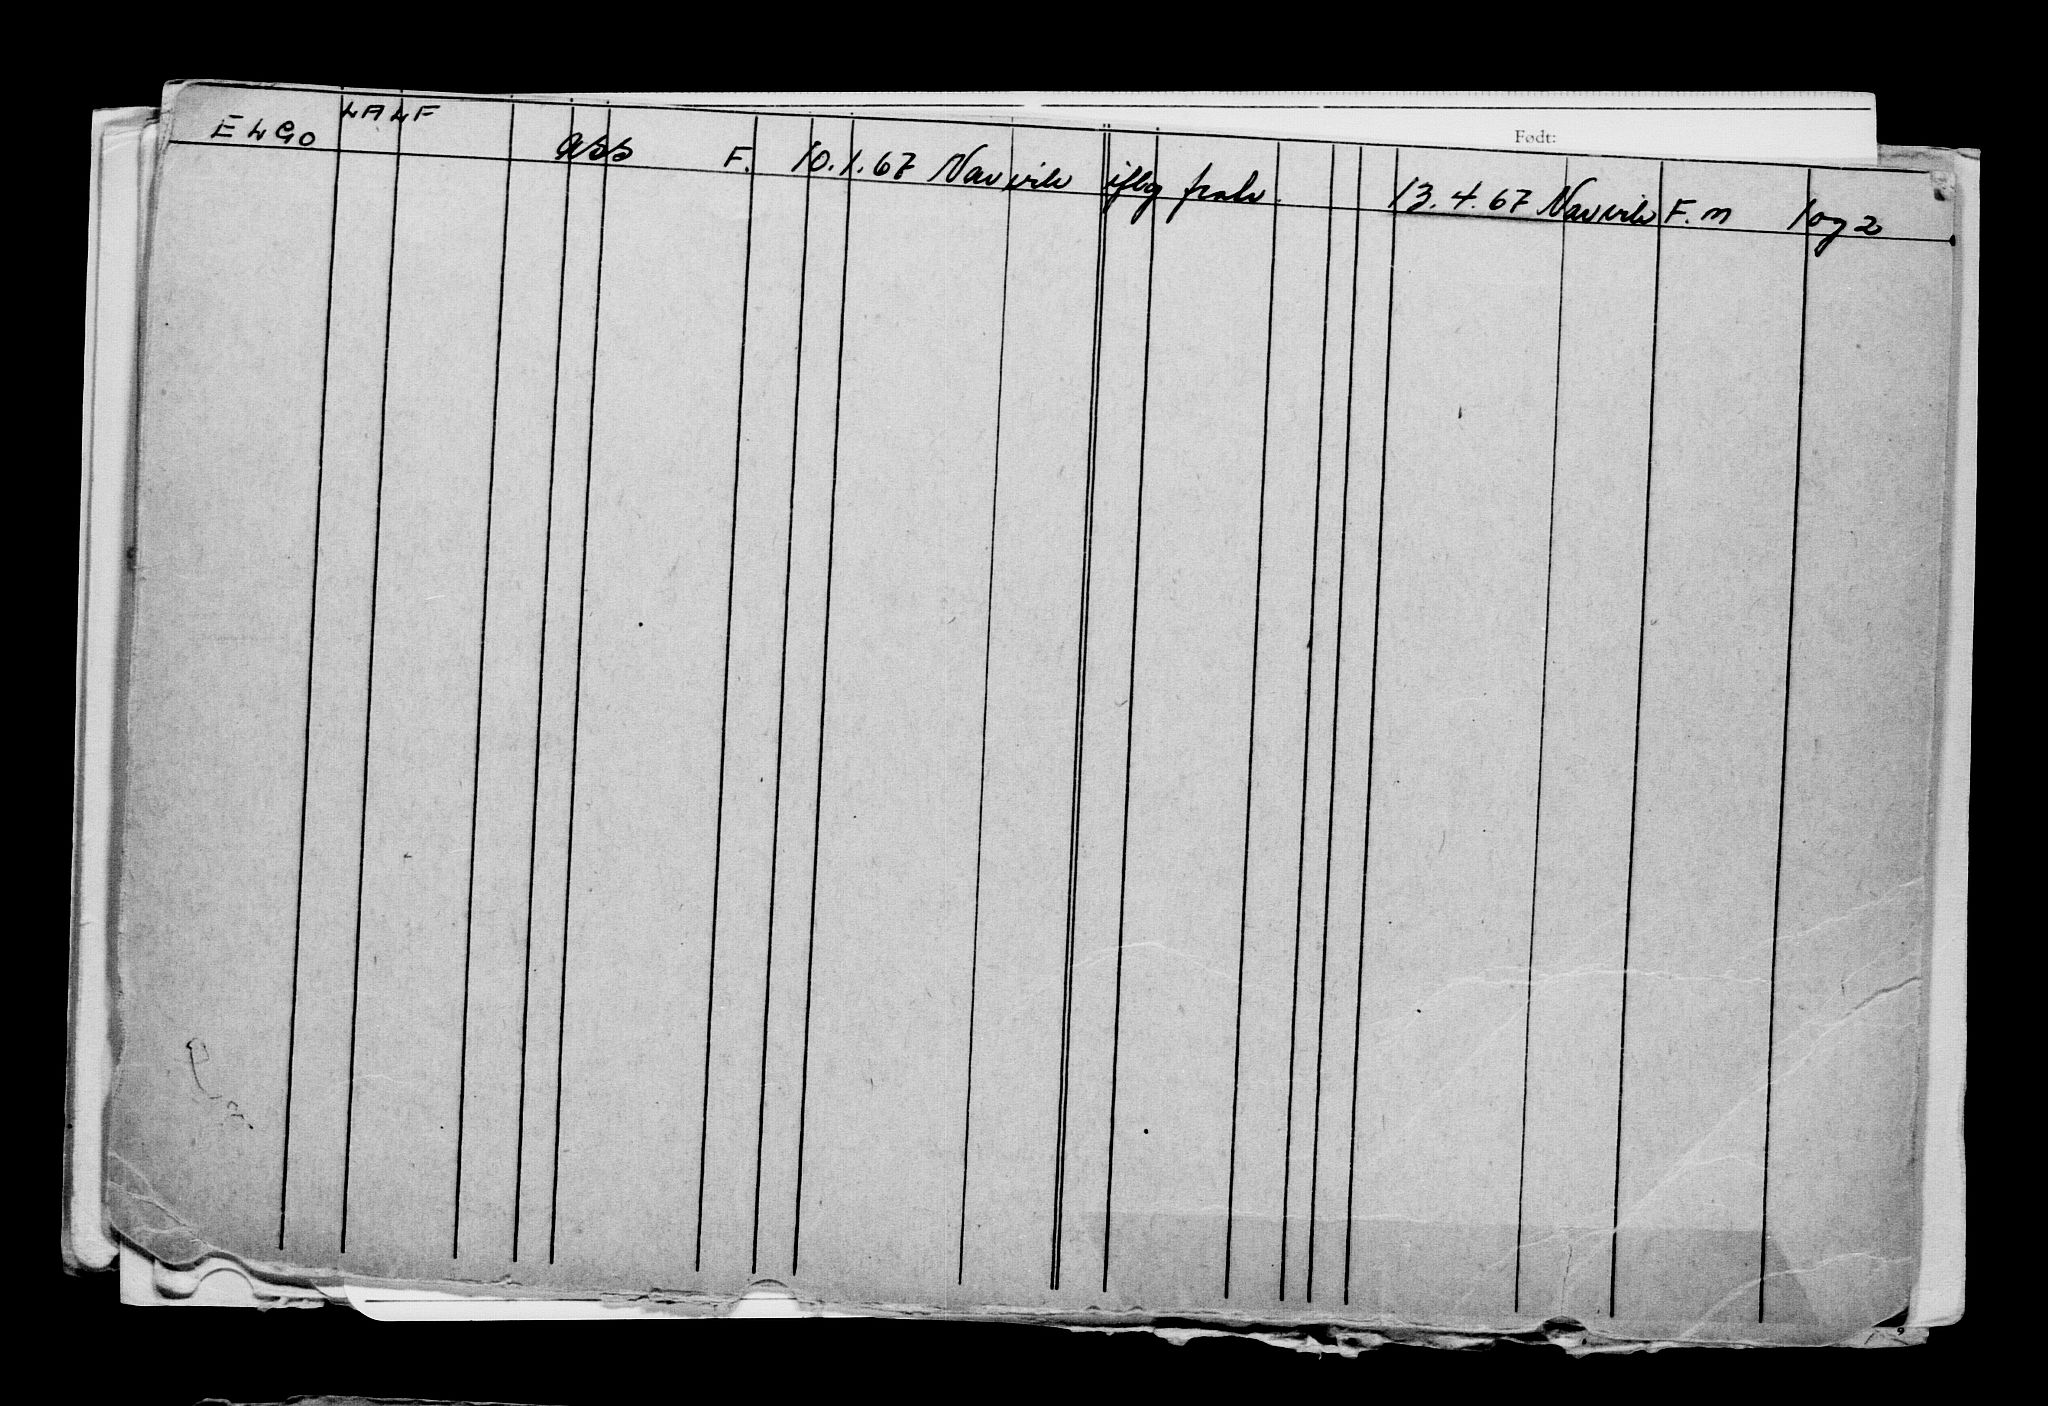 Født:
ELGO LALF ass F. 10.1.67 Narvik iflg frakr. 13.4.67 Narvik F.m 1 og 2